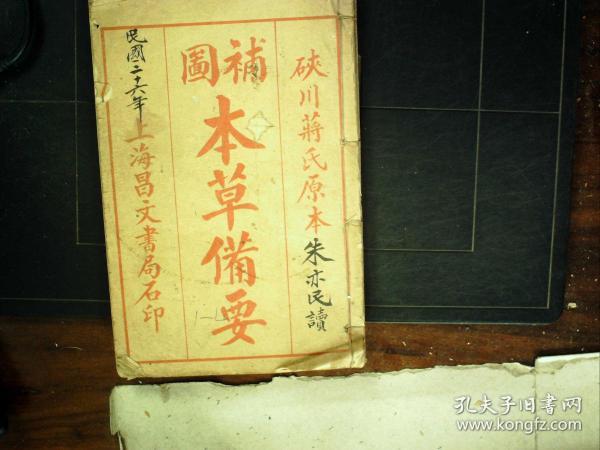 硤川蔣氏原本
朱亦民讀
補圖
本草備要
1-4
民國二十六年
上海昌文書局石印
孔夫子旧書网
www.kongfz.com